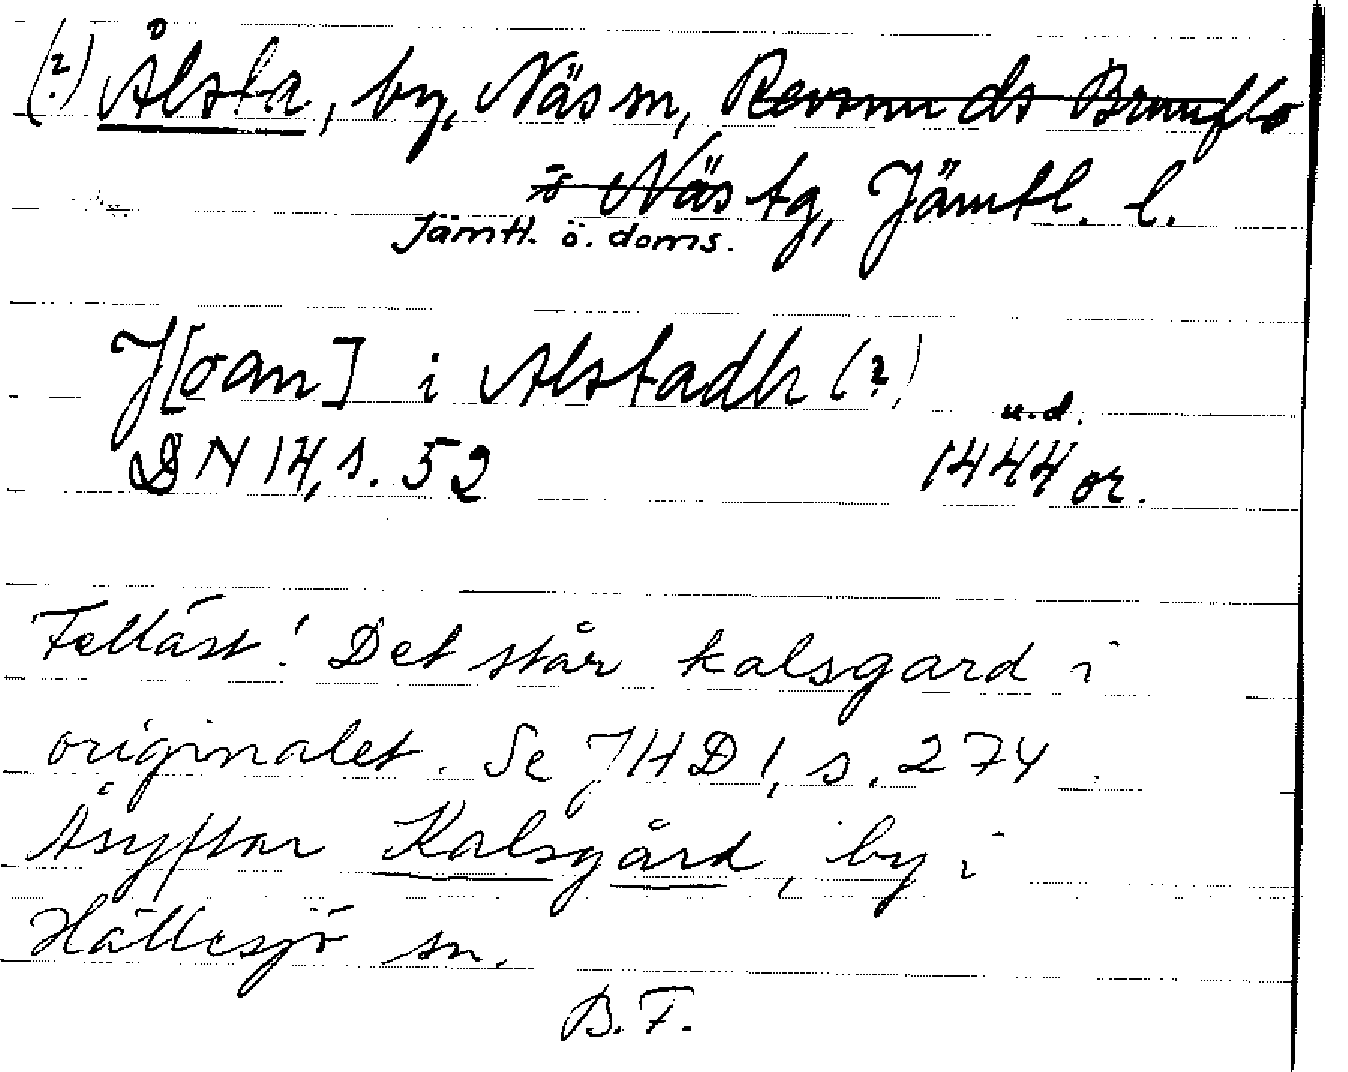 (?) Ålsta, by, Näs sn, Revsunds Brunflo
o Näs tg, Jämtl. l.
Jämtl. ö. doms.
J[oan] i Alstadh (?)
u.d.
DN 14, s. 52 1444 or.
Felläst! Det står kalsgard i
originalet. Se JHD 1, s. 274
Åsyftar Kalsgård, by i
Hällesjö sn.
B.F.